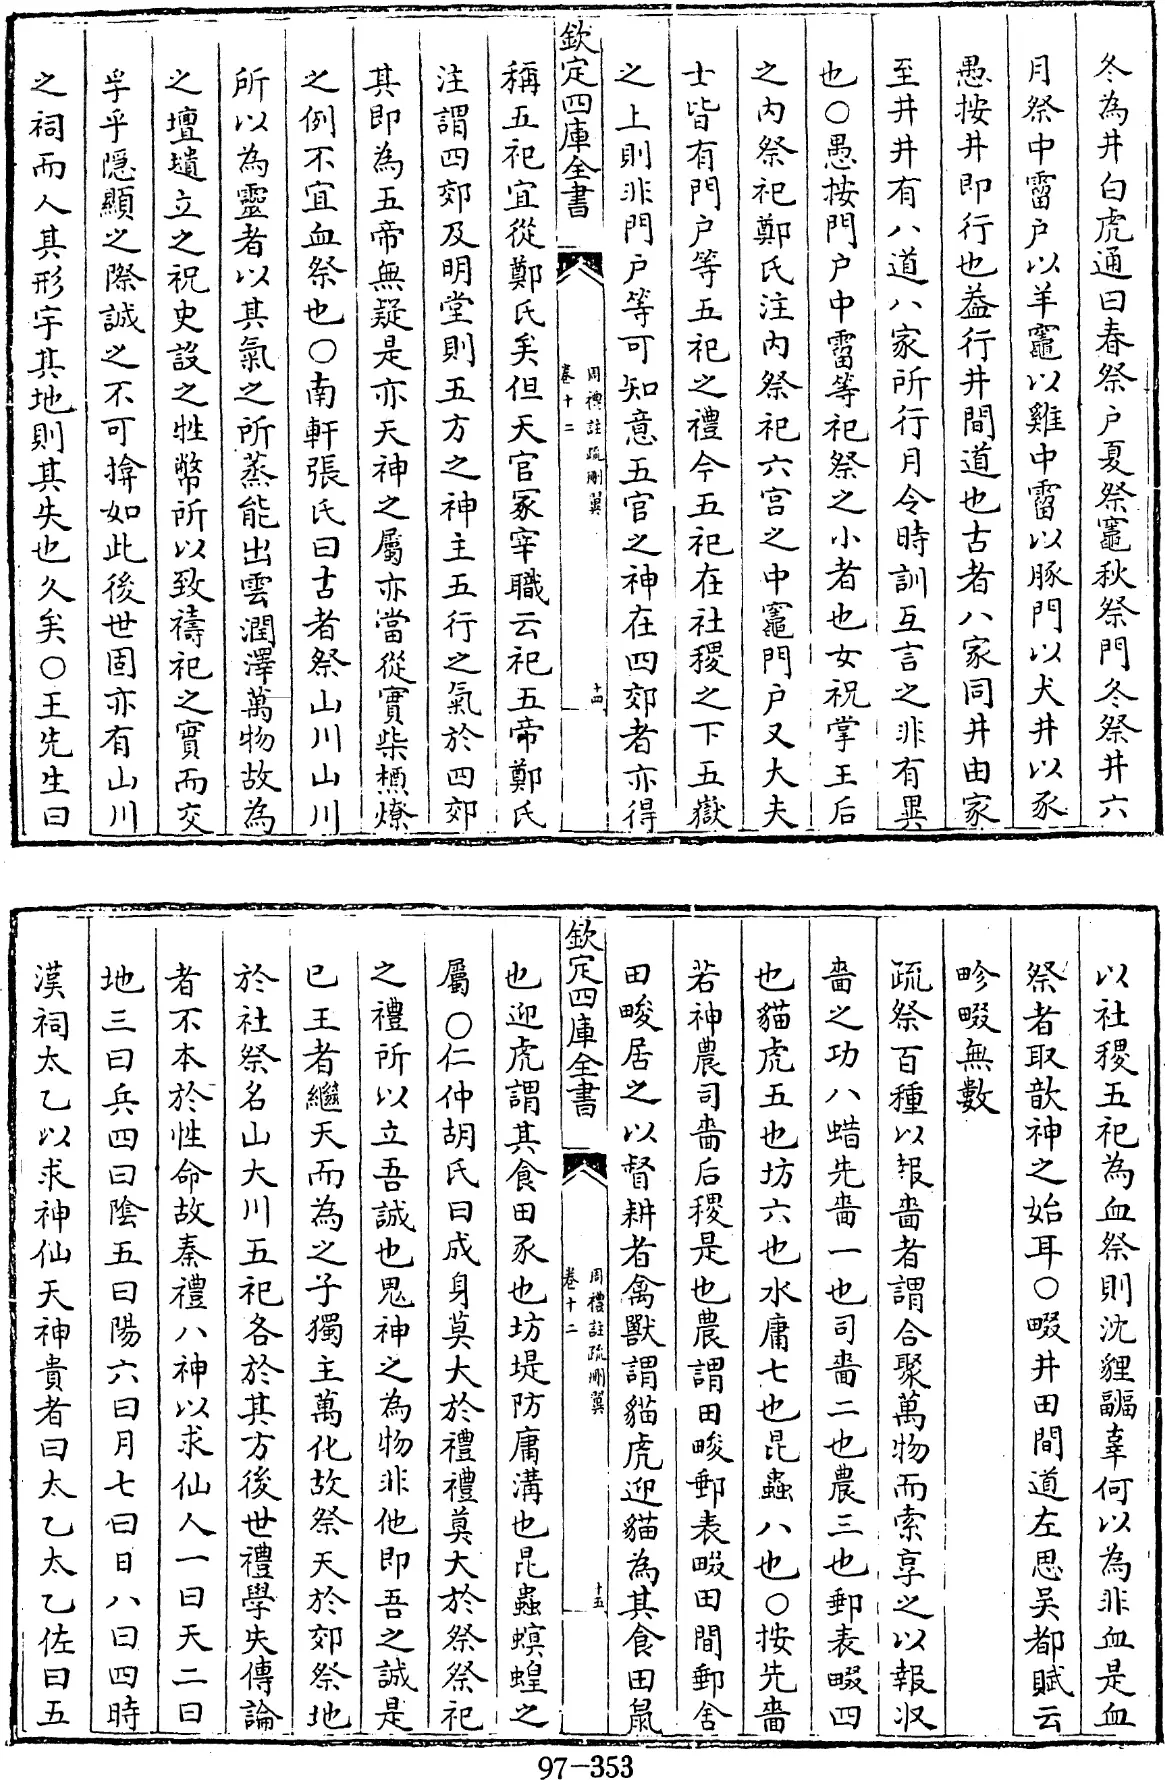 冬為井白虎通曰春祭户夏祭竈秋祭門冬祭井六
月祭中霤户以羊竈以雞中霤以豚門以犬井以豕
愚按井即行也葢行井間道也古者八家同井由家
至井井有八道八家所行月令時訓互言之非有異
也〇愚按門户中霤等祀祭之小者也女祝掌王后
之内祭祀鄭氏注内祭祀六宫之中竈門户又大夫
士皆有門户等五祀之禮今五祀在社稷之下五嶽
之上則非門户等可知意五官之神在四郊者亦得
欽定四庫全書
周禮註疏刪翼
卷十二
十四
稱五祀宜從鄭氏矣但天官冢宰職云祀五帝鄭氏
注謂四郊及明堂則五方之神主五行之氣於四郊
其即為五帝無疑是亦天神之屬亦當從實柴槱燎
之例不宜血祭也〇南軒張氏曰古者祭山川山川
所以為靈者以其氣之所蒸能出雲潤澤萬物故為
之壇壝立之祝史設之牲幣所以致禱祀之實而交
孚乎隱顯之際誠之不可揜如此後世固亦有山川
之祠而人其形宇其地則其失也久矣〇王先生曰
以社稷五祀為血祭則沈貍疈辜何以為非血是血
祭者取歆神之始耳〇畷井田間道左思吴都賦云
畛畷無數
疏祭百種以報嗇者謂合聚萬物而索享之以報收
嗇之功八蜡先嗇一也司嗇二也農三也郵表畷四
也貓虎五也坊六也水庸七也昆蟲八也〇按先嗇
若神農司嗇后稷是也農謂田畯郵表畷田間郵舍
田畯居之以督耕者禽獸謂貓虎迎貓為其食田鼠
欽定四庫全書
周禮註疏刪翼
卷十二
十五
也迎虎謂其食田豕也坊堤防庸溝也昆蟲螟蝗之
屬〇仁仲胡氏曰成身莫大於禮禮莫大於祭祭祀
之禮所以立吾誠也鬼神之為物非他即吾之誠是
已王者繼天而為之子獨主萬化故祭天於郊祭地
於社祭名山大川五祀各於其方後世禮學失傳論
者不本於性命故秦禮八神以求仙人一曰天二曰
地三曰兵四曰陰五曰陽六曰月七曰日八曰四時
漢祠太乙以求神仙天神貴者曰太乙太乙佐曰五
97-353